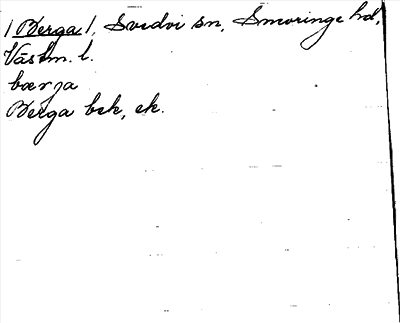 /Berga/, Svedvi sn, Snevringe hd,
Västm. l.
bærja
Berga bek, ek.